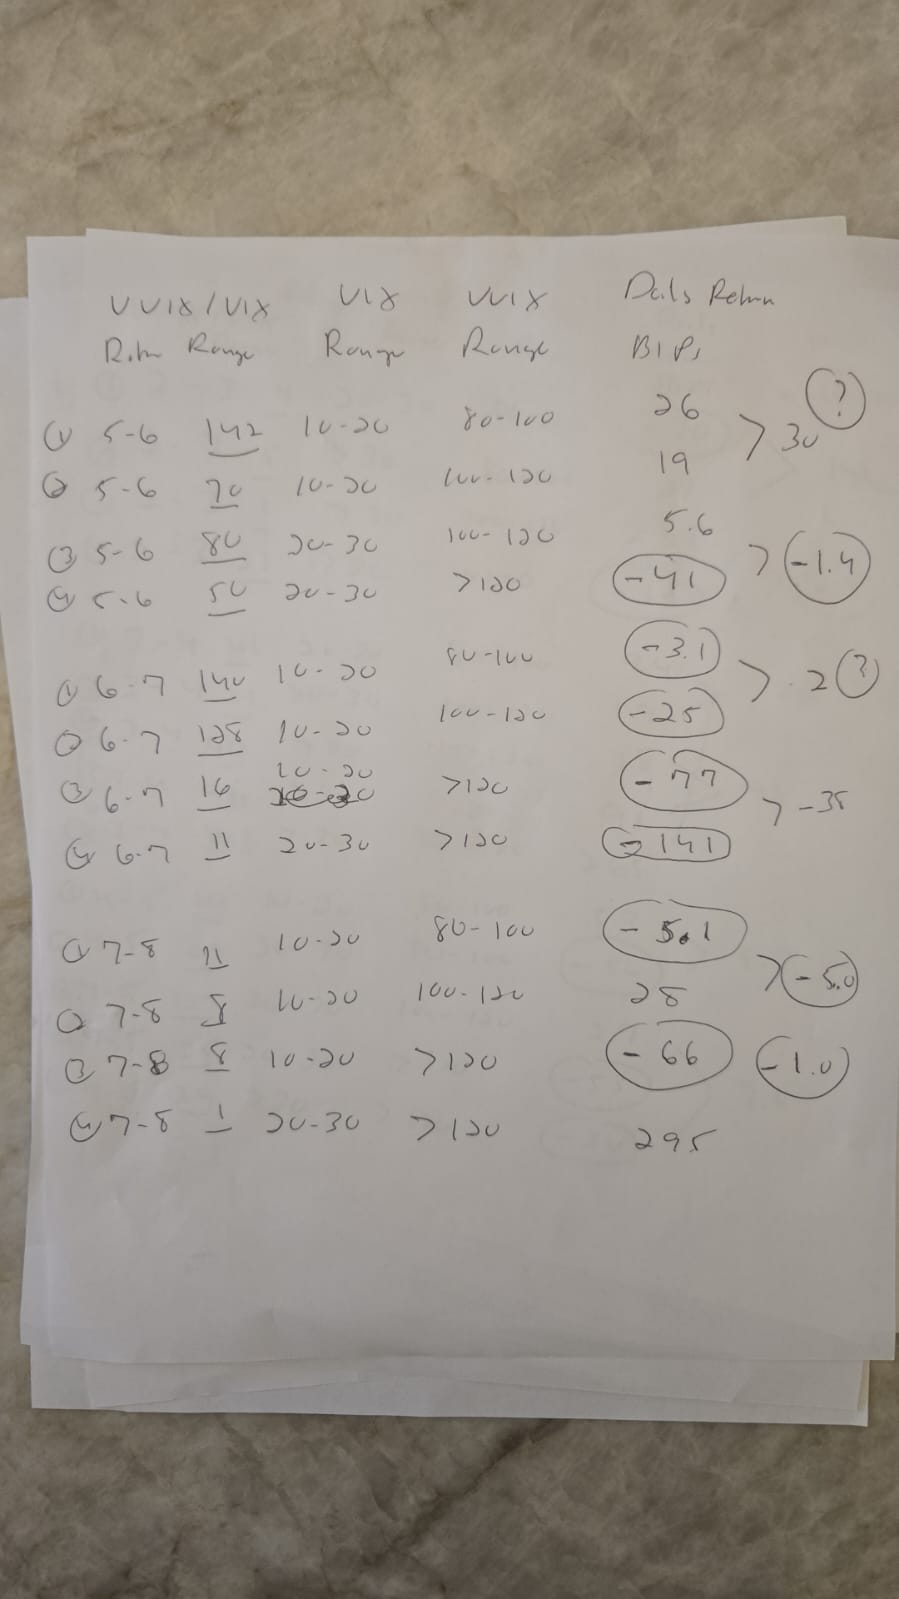 VVIX/VIX VIX VVIX Daily Return
Ratio Range Range Range BIPs
① 5-6 142 10-20 80-100 26
> 30 ?
② 5-6 70 10-20 100-120 19
③ 5-6 80 20-30 100-120 5.6
> -1.4
④ 5-6 50 20-30 >120 -41
① 6-7 140 10-20 80-100 -3.1
> .2 ?
② 6-7 128 10-20 100-120 -25
③ 6-7 16 10-20 >120 -77
> -35
④ 6-7 11 20-30 >120 -141
① 7-8 11 10-20 80-100 -5.1
> -5.0
② 7-8 8 10-20 100-120 28
③ 7-8 8 10-20 >120 -66 -1.0
④ 7-8 1 20-30 >120 295